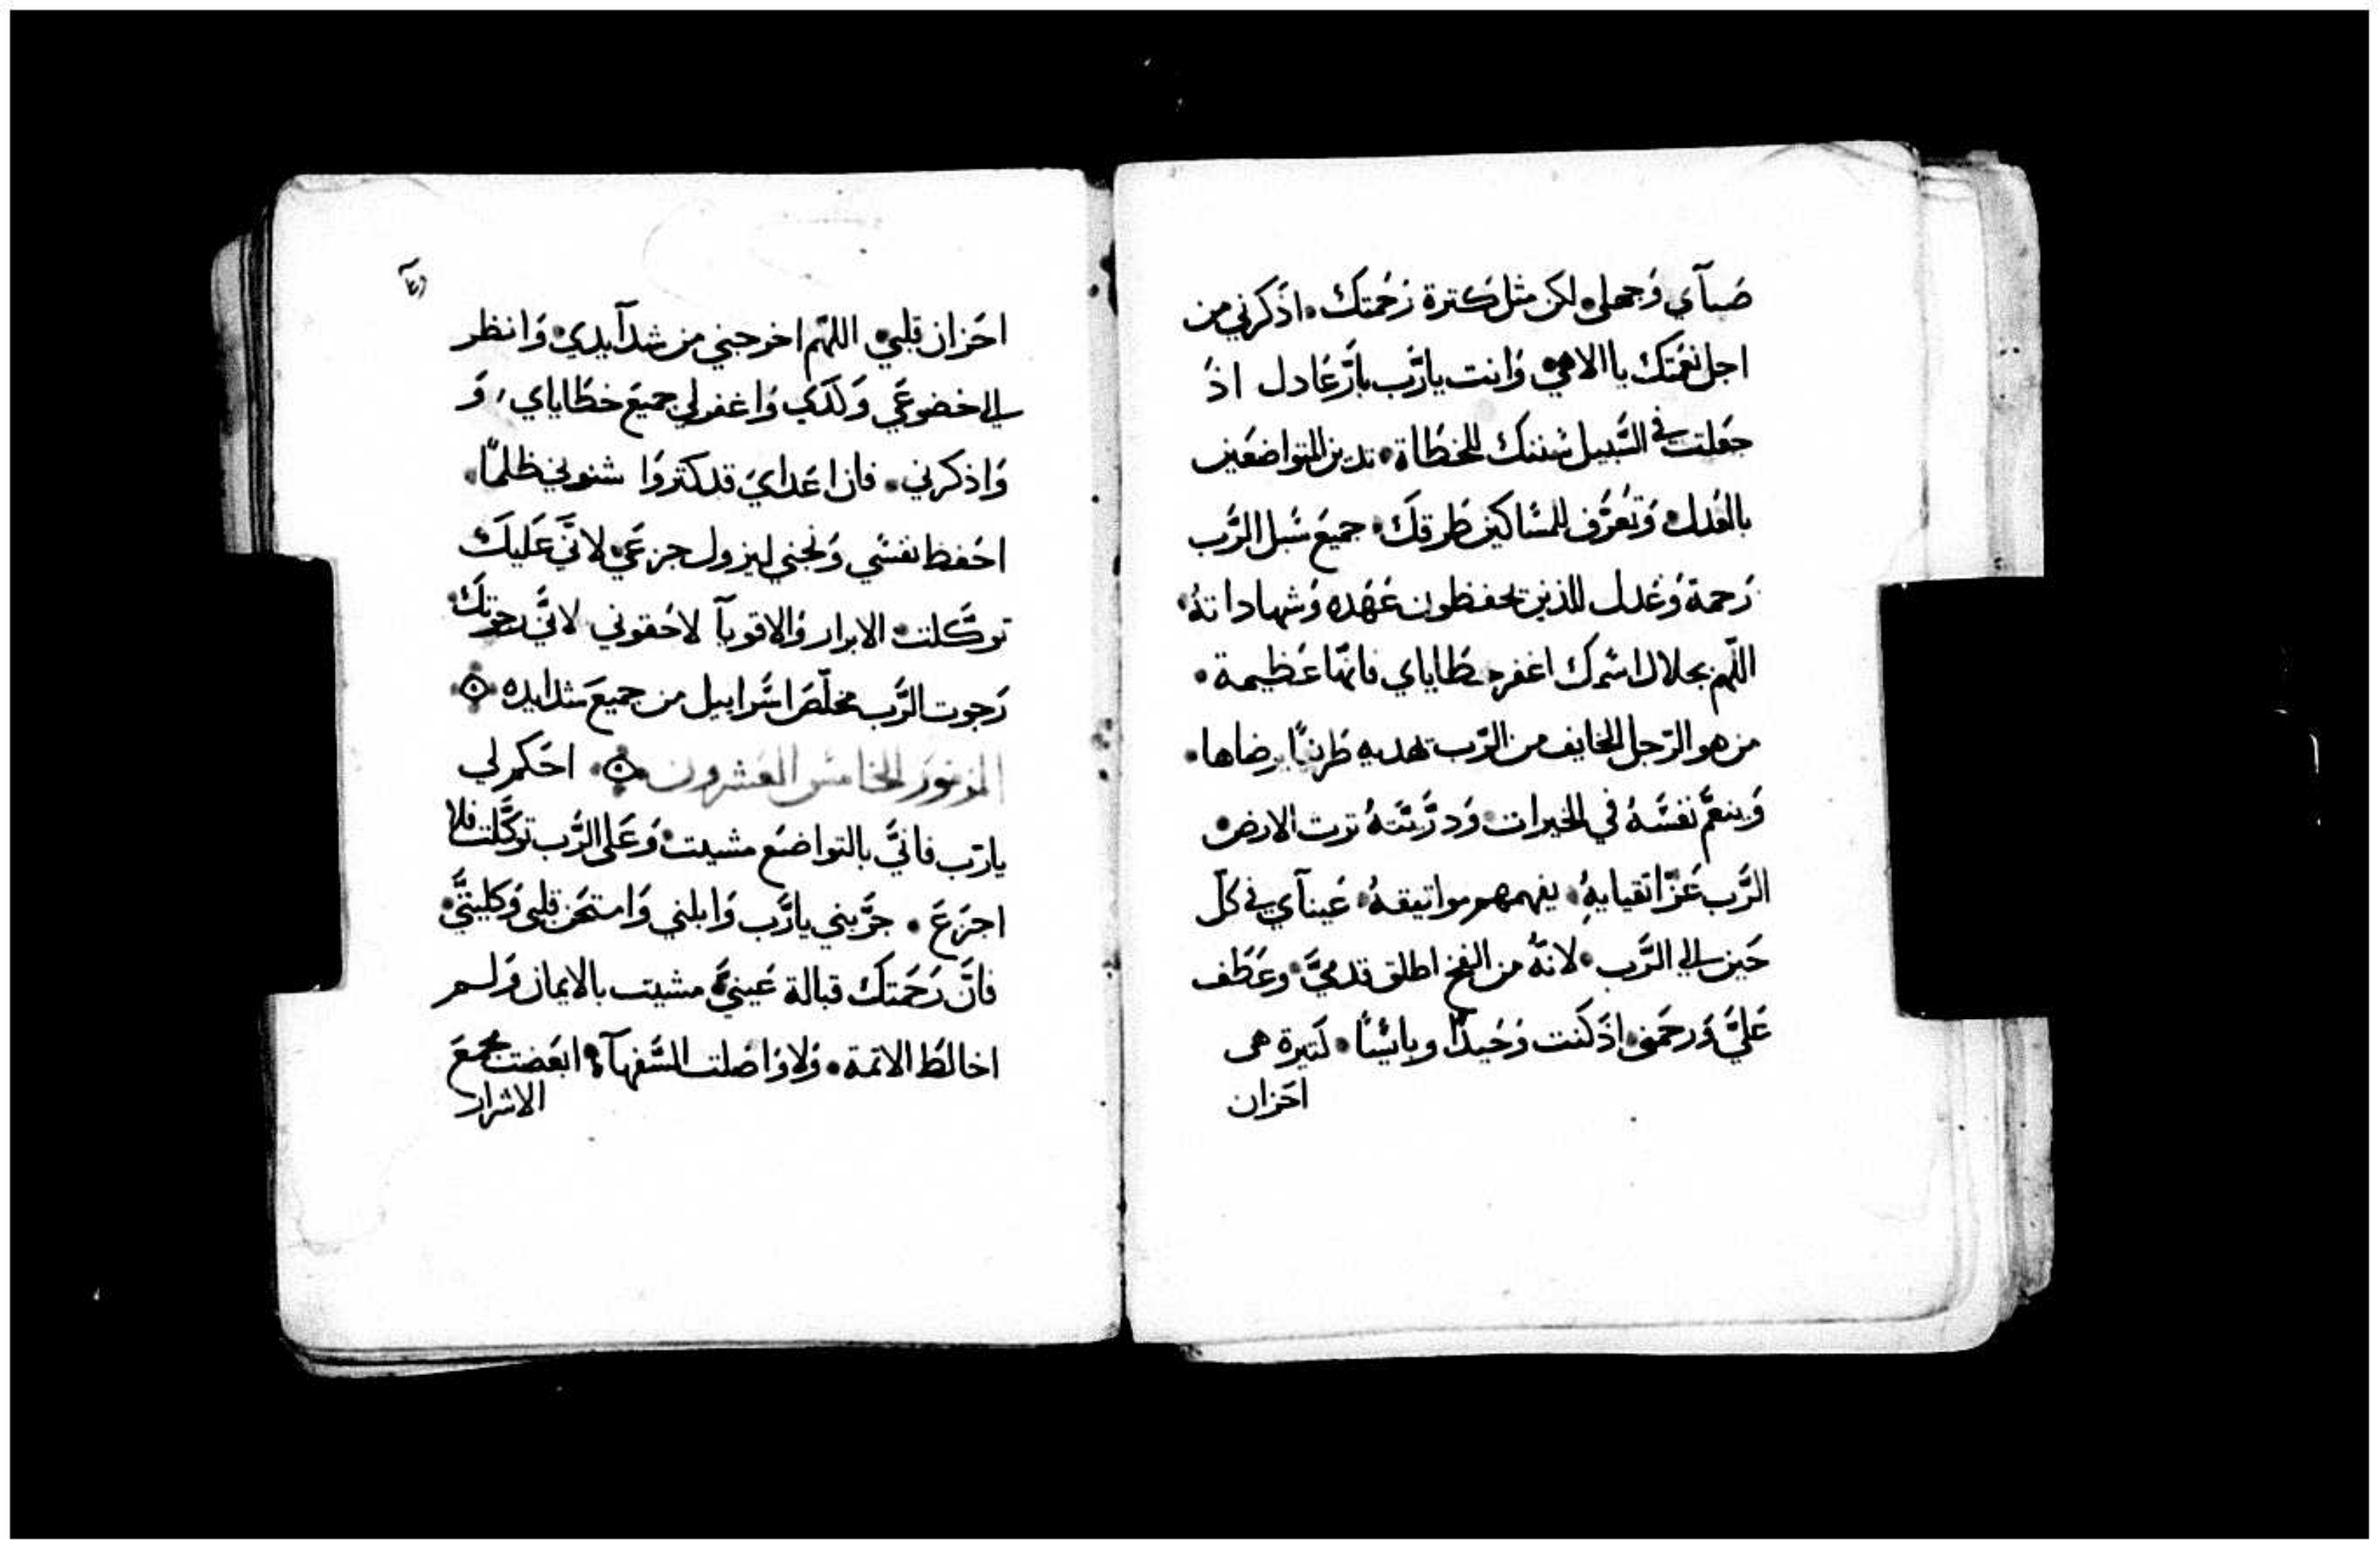 صَبآي وَجهلي• لكن مثل كترة رَحمتك• اذكرني من
اجل نعَمتك ياالاهي• وَانت يارَّب بارَّ عَادل اذ
جَعلت في السَّبيل سُننك للخطَاة• تدين المتواضعَين
بالعُدل• وَتعُرَّف للمسَاكين طرقكَ• جميعَ سُبل الرَّب
رَحمة وَعَدل للذين يحفظون عَهَده وَشهاداتهُ•
اللّهم بجلال اسَمك اغفر خطَاياي فانهّا عَظيمة•
من هو الرّجل الخايف من الرّب تهديه طريقًا يرضاها•
وَينعَّم نفسَهُ في الخيرات• وَدرَّيتَهُ ترت الارض•
الرَّب عَزّ اتقيايهِ• يفهمهم مواتيقهُ• عَينآي في كلّ
حَين الي الرَّب• لانهُّ من الفخ اطلق قدميَّ• وعَطَف
عَليَّ وَرحمَني• اذ كنت وَحُيدًا وبائسًا• كتيرة هي
احَزان
احَزان قلبي• اللهّم اخرجني من شدآيدي• وَانظر
الي خضوعَي وَكدَي وَاغفر لي جميعَ خطَاياي، وَ
وَاذكرني• فان اعَدايَ قد كثروَا شنوني ظلماً•
احَفظ نفسَي وَنجني ليزول جزعَي• لانَّي عَليكَ
توكَّلت• الابرار وَالاقويآ لاحَقوني لانيَّ رجوَتكَ•
رَجوت الرَّب مخلّصَ اسَرابيل من جميعَ شدايده
المزمور الخامسَ العَشرون • احَكم لي
يارَب فانيَّ بالتواضعَ مشيت• وَعَلى الرَّب توكَّلت فلا
اجزَعَ • جرَّبني يارَّب وَابلني وَامتحَن قلبي وَكليتيَّ•
فانَّ رَحَمتكَ قبالة عَينيَّ• مشيت بالايمان وَلم
اخالطَ الاتمة• وَلا وَاصَلت السَّفهآ• ابغَضت مجمعَ
الاشرار